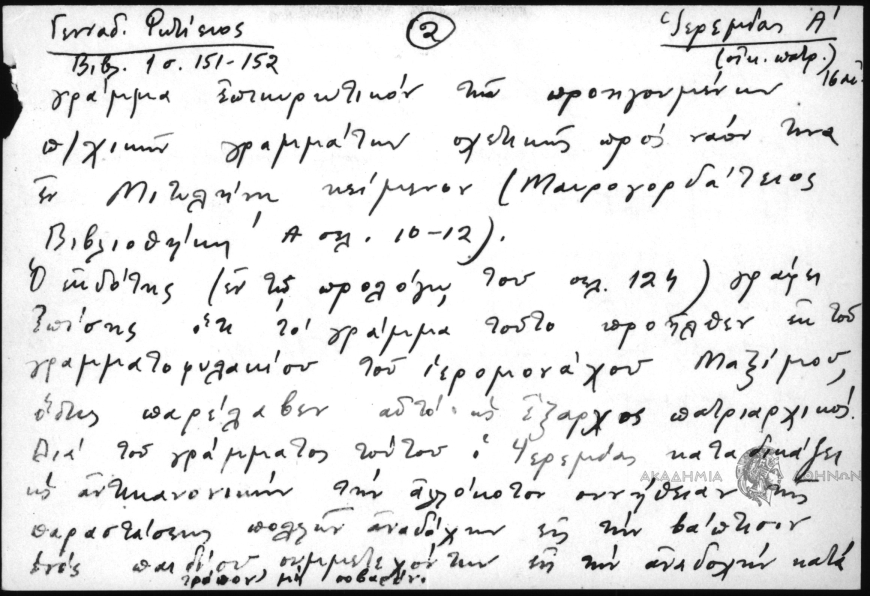 Γενναδ. Φωτίειος
②
Ἱερεμίας Α′
Βιβλ. 1 σ. 151-152
(οἰκ. πατρ.)
16 αἰ.
γράμμα ἐπικυρωτικόν τῶν προηγουμένων
π/χικῶν γραμμάτων σχετικῶς πρός ναόν τινα
ἐν Μιτυλήνῃ κείμενον (Μαυρογορδάτειος
Βιβλιοθήκη Α σελ. 10-12).
Ὁ ἐκδότης (ἐν τῷ προλόγῳ του σελ. 124) γράφει
ἐπίσης ὅτι τό γράμμα τοῦτο προῆλθεν ἐκ τοῦ
γραμματοφυλακίου τοῦ ἱερομονάχου Μαξίμου,
ὅστις παρέλαβεν αὐτό ὡς ἔξαρχος πατριαρχικός.
Διά τοῦ γράμματος τούτου ὁ Ἱερεμίας καταδικάζει
ὡς ἀντικανονικήν τήν ἀλλόκοτον συνήθειαν τῆς
παραστάσεως πολλῶν ἀναδόχων εἰς τήν βάπτισιν
ἑνός παιδίου συμμετεχόντων εἰς τήν ἀναδοχήν κατά
τρόπον μή σοβαρόν.
ΑΚΑΔΗΜΙΑ ΑΘΗΝΩΝ